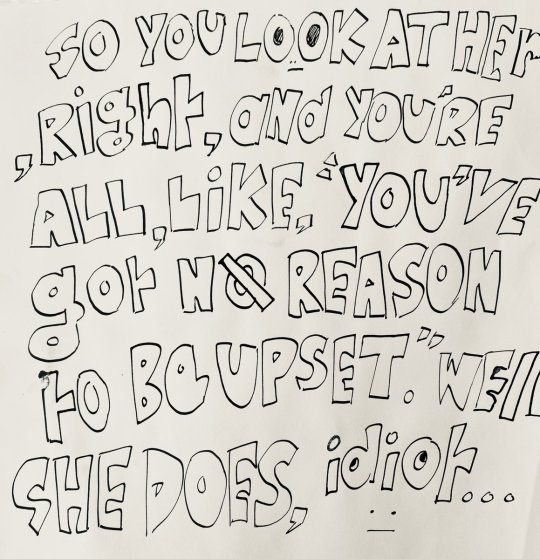 SO YOU LOOK AT HER
, Right, and YOU'RE
ALL, LiKE, "YOU'VE
got NO REASON
to Be UPSET." WEll
SHE DOES, idiot...